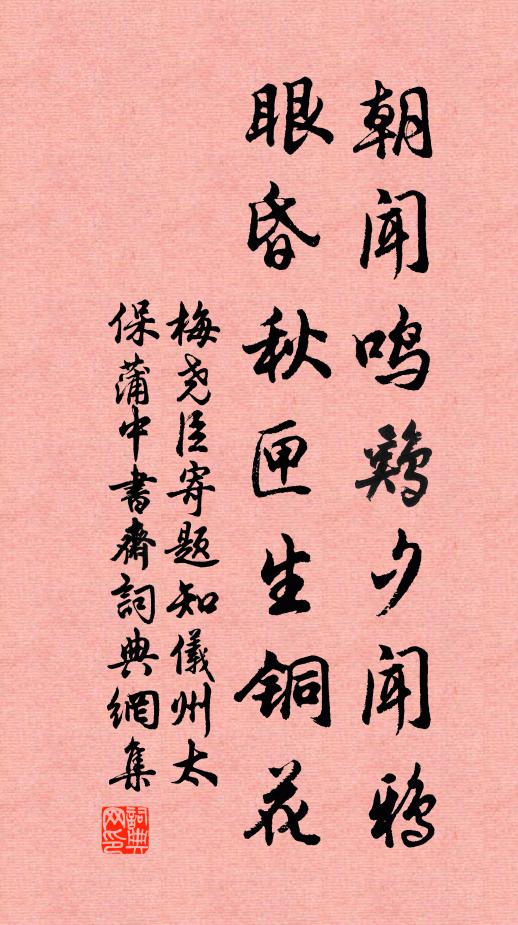 朝闻鸣鷄夕闻鸦
眼昏秋匣生铜花
梅尧臣寄题知儀州太
保蒲中書齋詞典網集
詞典网印